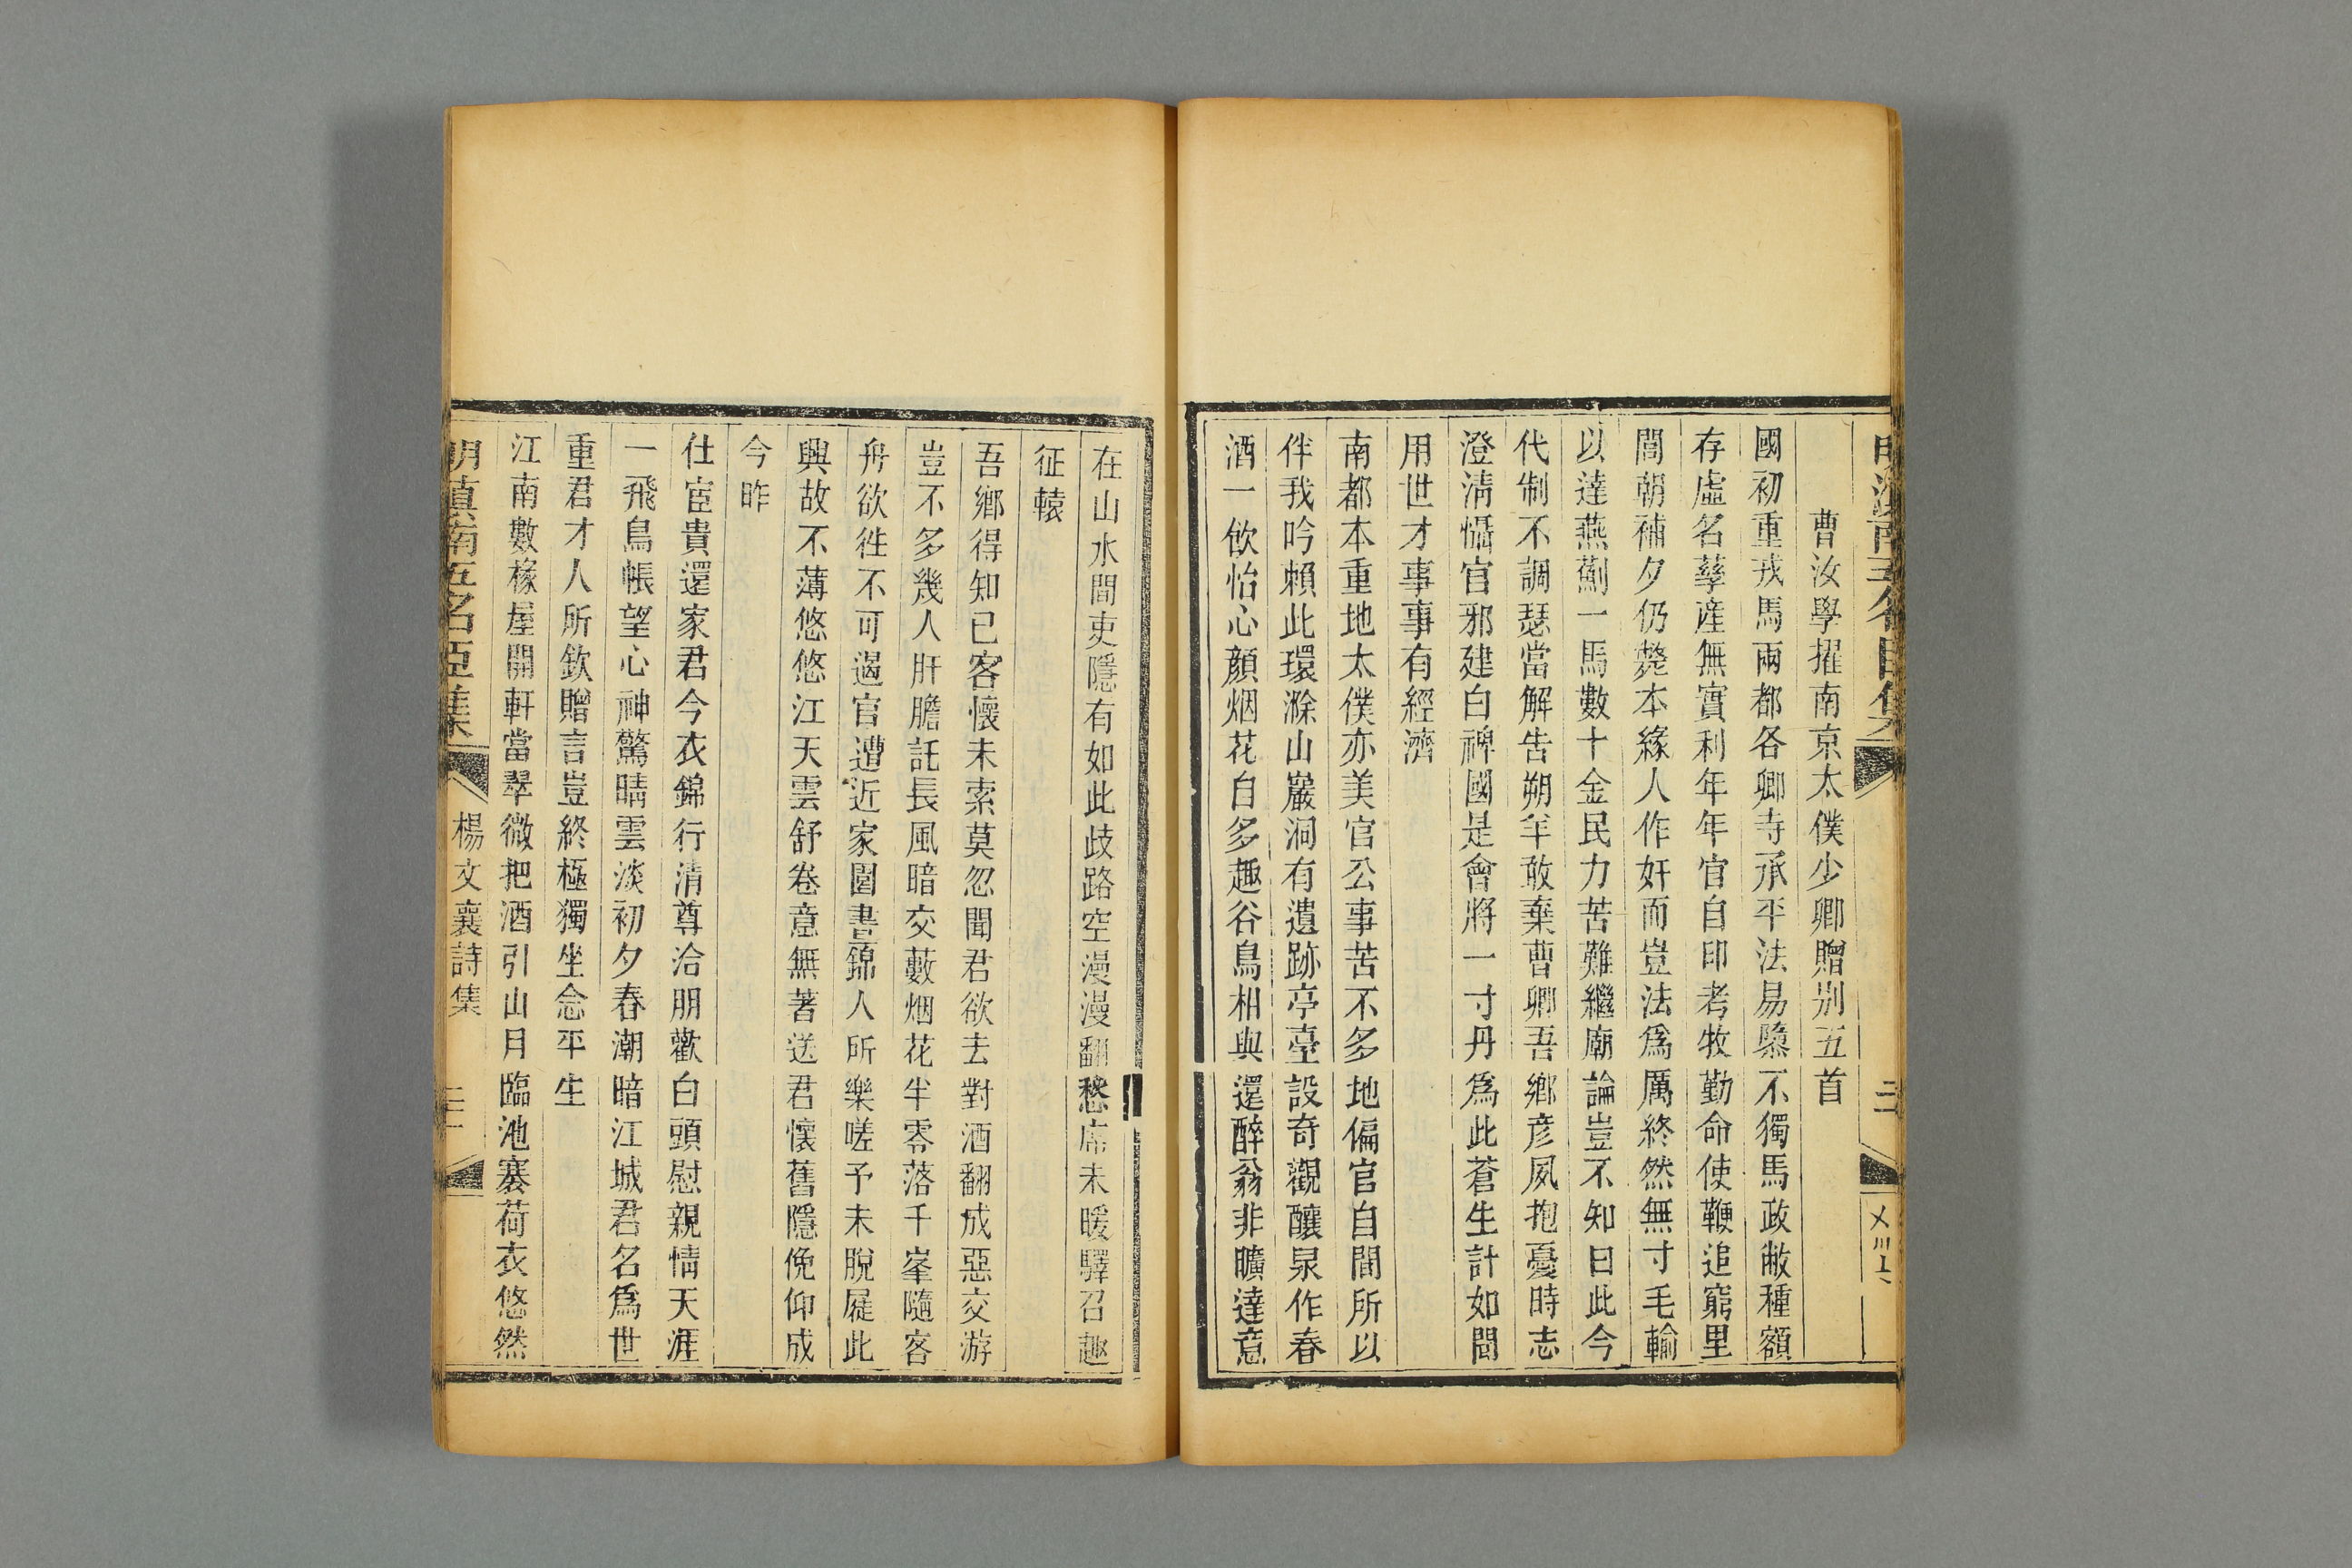 曹汝學擢南京太僕少卿贈別五首
國初重戎馬兩都各卿寺承平法易隳不獨馬政敝種額
存虛名孳産無實利年年官自印考牧勤命使鞭追窮里
閭朝補夕仍斃本緣人作奸而豈法爲厲終然無寸毛輸
以達燕薊一馬數十金民力苦難繼廟論豈不知曰此今
代制不調瑟當解告朔羊敢棄曹卿吾鄉彥夙抱憂時志
澄清懾官邪建白裨國是會將一寸丹爲此蒼生計如閭
用世才事事有經濟
南都本重地太僕亦美官公事苦不多地偏官自閒所以
伴我吟賴此環滁山巖洞有遺跡亭臺設奇觀釀泉作春
酒一飲怡心顏烟花自多趣谷鳥相與還醉翁非曠達意
在山水間吏隱有如此歧路空漫漫翻愁席未暖驛召趣
征轅
吾鄉得知已客懷未索莫忽聞君欲去對酒翻成惡交游
豈不多幾人肝膽託長風暗交藪烟花半零落千峯隨客
舟欲徃不可遏官遭近家園晝錦人所樂嗟予未脫屣此
興故不薄悠悠江天雲舒卷意無著送君懷舊隱俛仰成
今昨
仕宦貴還家君今衣錦行清尊洽朋歡白頭慰親情天涯
一飛鳥帳望心神驚晴雲淡初夕春潮暗江城君名爲世
重君才人所欽贈言豈終極獨坐念平生
江南數椽屋開軒當翠微把酒引山月臨池褰荷衣悠然
明滇南五名臣集
楊文襄詩集